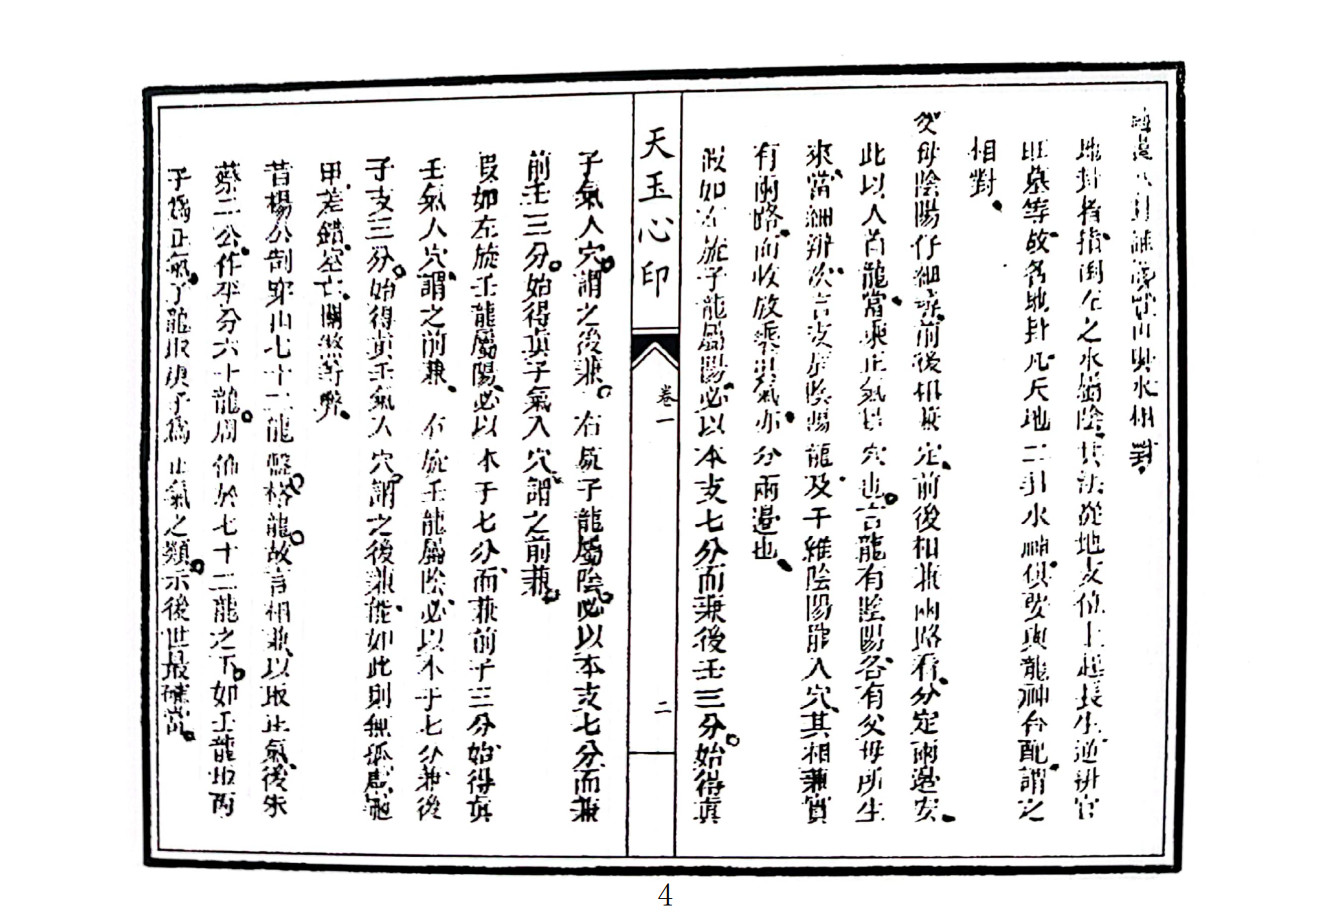 地卦者指向左之水屬陰其法從地支位上起長生逆辨官
旺墓等故名地卦凡天地二卦水神俱要與龍神合配謂之
相對
父母陰陽仔細尋前後相兼定前後相兼兩路看分定兩邊安
此以入首龍當乘正氣壯穴也言龍有陰陽各有父母所生
來當細辨次言支辰陰陽龍及干維陰陽龍入穴其相兼實
有兩路而收放乘氣亦分兩邊也
假如左旋子龍屬陽必以本支七分而兼後壬三分始得真
天玉心印
卷一
二
子氣入穴謂之後兼右旋子龍屬陰必以本支七分而兼
前壬三分始得真子氣入穴謂之前兼
假如左旋壬龍屬陽必以本干七分而兼前子三分始得真
壬氣入穴謂之前兼右旋壬龍屬陰必以本干七分兼後
子支三分始得真壬氣入穴謂之後兼能如此則無孤虛
甲差錯空亡關煞等弊
昔楊公制穿山七十二龍盤格龍故言相兼以取正氣後朱
蔡二公作平分六十龍周佈於七十二龍之下如壬龍取丙
子為正氣子龍取庚子為正氣之類示後世最確當
4